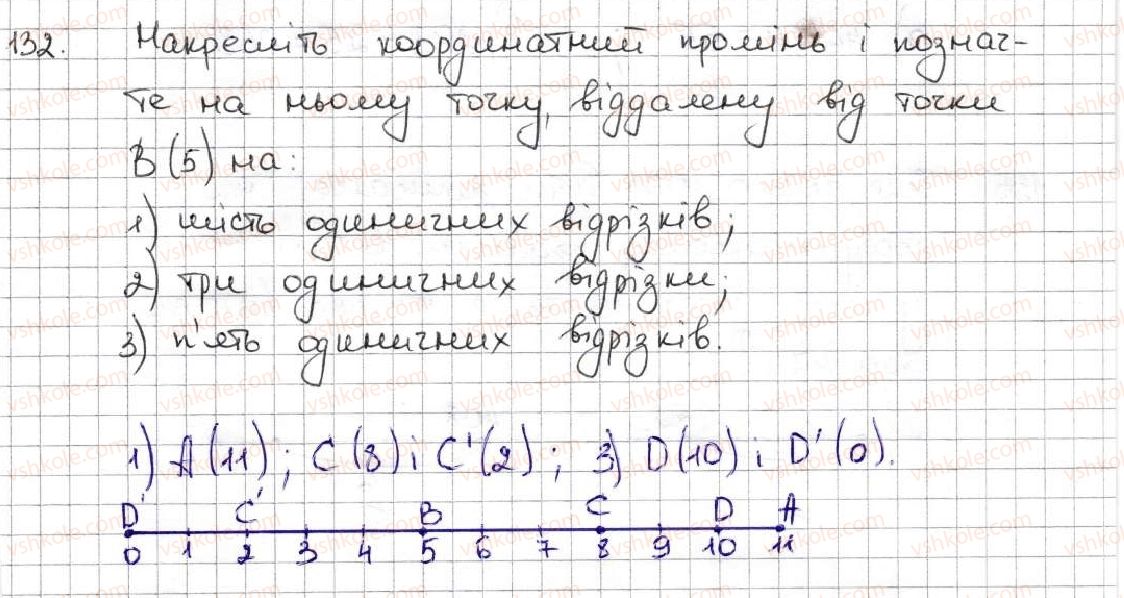 132. Накресліть координатний промінь і познач-
те на ньому точку, віддалену від точки
B(5) на:
1) шість одиничних відрізків;
2) три одиничних відрізки;
3) п'ять одиничних відрізків.
1) A(11); C(8) і C'(2); 3) D(10) і D'(0).
D' C' B C D A
0 1 2 3 4 5 6 7 8 9 10 11